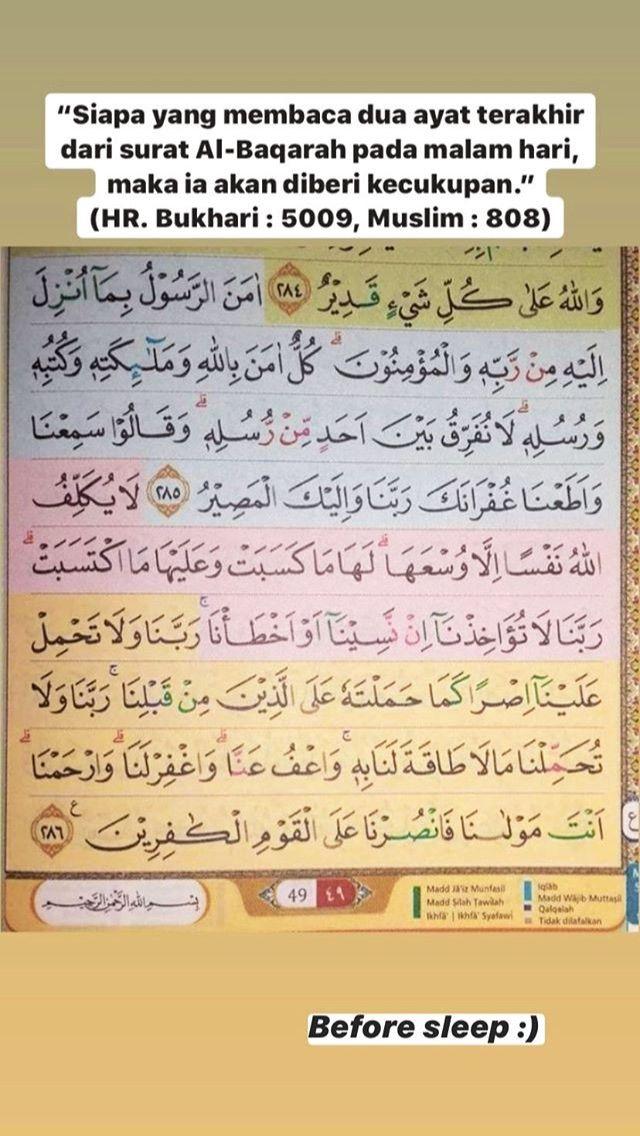 “Siapa yang membaca dua ayat terakhir
dari surat Al-Baqarah pada malam hari,
maka ia akan diberi kecukupan.”
(HR. Bukhari : 5009, Muslim : 808)
وَاللّٰهُ عَلٰى كُلِّ شَيْءٍ قَدِيْرٌ ۝٢٨٤ اٰمَنَ الرَّسُوْلُ بِمَآ اُنْزِلَ
اِلَيْهِ مِنْ رَّبِّهٖ وَالْمُؤْمِنُوْنَۗ كُلٌّ اٰمَنَ بِاللّٰهِ وَمَلٰۤىِٕكَتِهٖ وَكُتُبِهٖ
وَرُسُلِهٖۗ لَا نُفَرِّقُ بَيْنَ اَحَدٍ مِّنْ رُّسُلِهٖۗ وَقَالُوْا سَمِعْنَا
وَاَطَعْنَا غُفْرَانَكَ رَبَّنَا وَاِلَيْكَ الْمَصِيْرُ ۝٢٨٥ لَا يُكَلِّفُ
اللّٰهُ نَفْسًا اِلَّا وُسْعَهَاۗ لَهَا مَا كَسَبَتْ وَعَلَيْهَا مَا اكْتَسَبَتْۗ
رَبَّنَا لَا تُؤَاخِذْنَآ اِنْ نَّسِيْنَآ اَوْ اَخْطَأْنَاۚ رَبَّنَا وَلَا تَحْمِلْ
عَلَيْنَآ اِصْرًا كَمَا حَمَلْتَهٗ عَلَى الَّذِيْنَ مِنْ قَبْلِنَاۚ رَبَّنَا وَلَا
تُحَمِّلْنَا مَا لَا طَاقَةَ لَنَا بِهٖۚ وَاعْفُ عَنَّاۗ وَاغْفِرْ لَنَاۗ وَارْحَمْنَاۗ
اَنْتَ مَوْلٰىنَا فَانْصُرْنَا عَلَى الْقَوْمِ الْكٰفِرِيْنَ ࣖ ۝٢٨٦
ع
بِسْمِ اللّٰهِ الرَّحْمٰنِ الرَّحِيْمِ
49 ٤٩
Madd Jā'iz Munfaṣil
Madd Ṣilah Ṭawīlah
Ikhfā' | Ikhfā' Syafawī
Iqlāb
Madd Wājib Muttaṣil
Qalqalah
Tidak dilafalkan
Before sleep :)